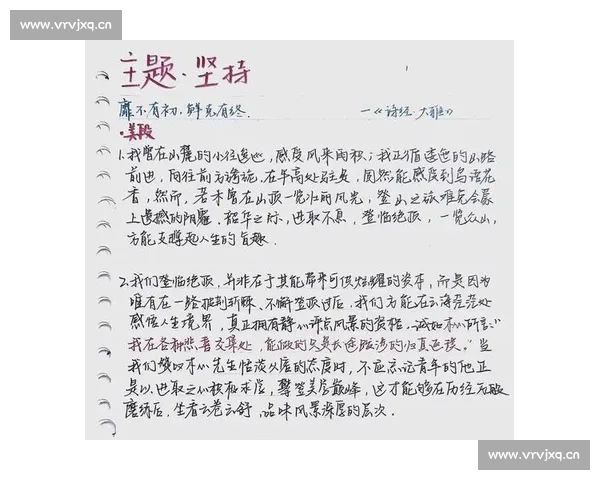 www.vrvjxq.cn
主题·坚持
靡不有初,鲜克有终. —《诗经·大雅》
·美段
1.我曾在山麓的小径造也,感受风来雨积;我正循逶迤的山路
前进,向往前方诸旖,在半高处驻足,固然能感受到鸟语花
香,然而,若未曾在山顶一览壮丽风光,登山之旅难免会蒙
上遗憾的阴霾.韶华之际,进取不息,登临绝顶,一览众山,
方能支撑起人生的旨趣.
2.我们登临绝顶,并非在于其能带来可供炫耀的资本,而是因为
唯有在一路披荆斩棘、不懈坚顶过后,我们方能在云海苍茫处
感悟人生境界,真正拥有静心评点风景的资格.诚如木心所言:"
我在各种悲喜交集处,能做的只是长途跋涉的归真返璞."当
我们赞叹木心先生恬淡人生的态度时,不应忘记青年的他正
是以进取之心积极求索,攀登美学巅峰,这才能够在历经
磨练后,坐看云卷云舒,品味风景深度的层次.
www.vrvjxq.cn